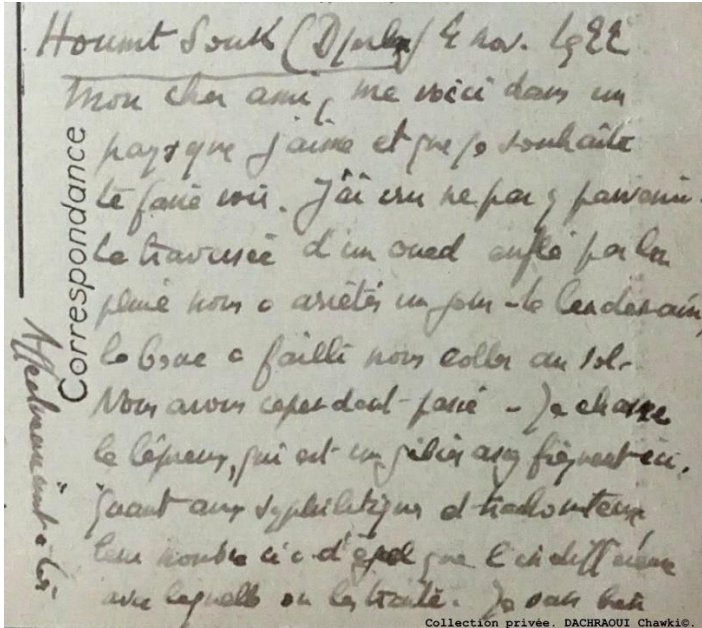 Houmt Souk (Djerba) 4 nov. 1922
Mon cher ami, me voici dans un
pays que j'aime et que je souhaite
te faire voir. J'ai cru ne pas y parvenir.
La traversée d'un oued enflé par les
pluie nous a arrêtés un jour - le lendemain,
la boue a failli nous coller au sol.
Nous avons cependant passé - Je chasse
le lépreux, qui est un gibier assez fréquent ici.
Quant aux syphilitiques et trachomateux
leur nombre n'a d'égal que l'indifférence
avec laquelle on les traite. Je vais bien
Correspondance
Affectueusement à toi
Collection privée. DACHRAOUI Chawki©.